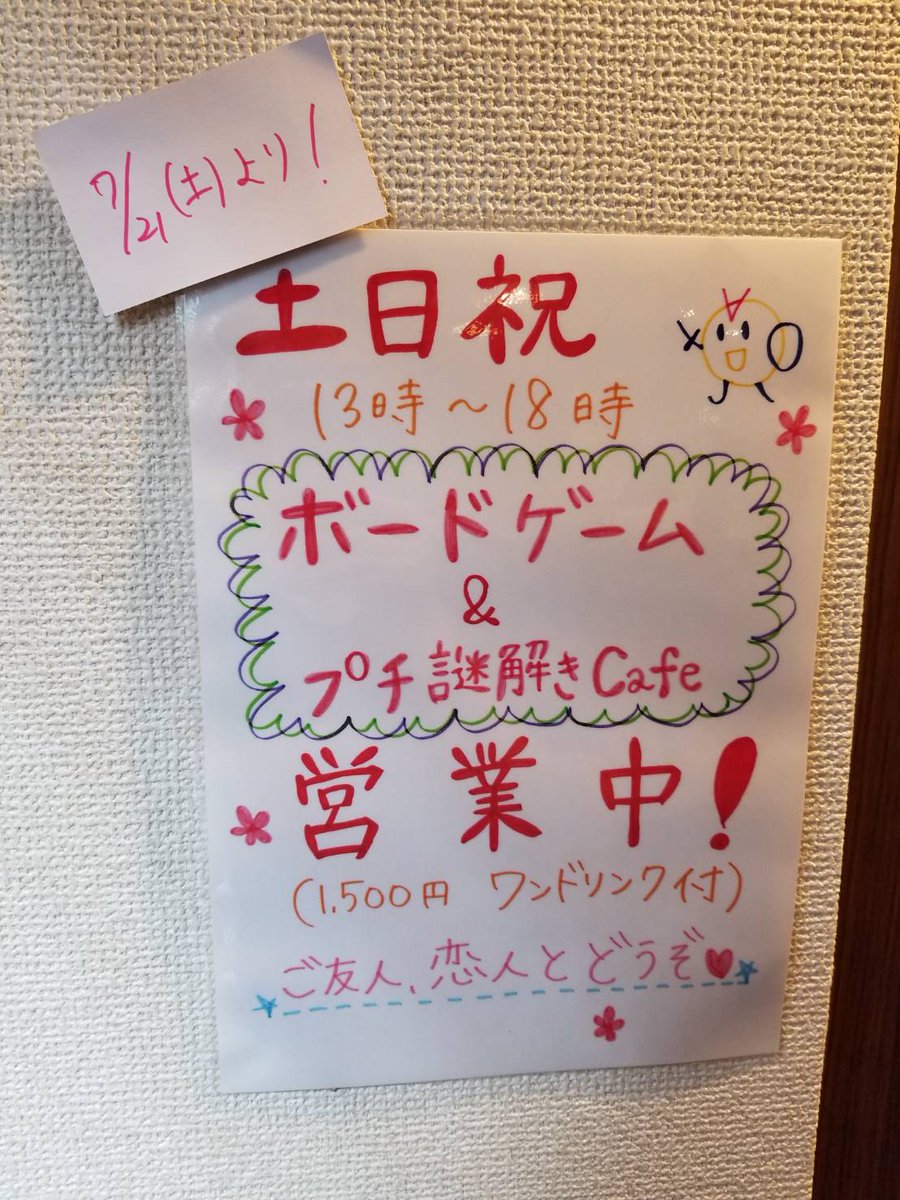 7/21(土)より!
土日祝
13時~18時
ボードゲーム
&
プチ謎解きCafe
営業中!
(1,500円 ワンドリンク付)
ご友人、恋人とどうぞ♥